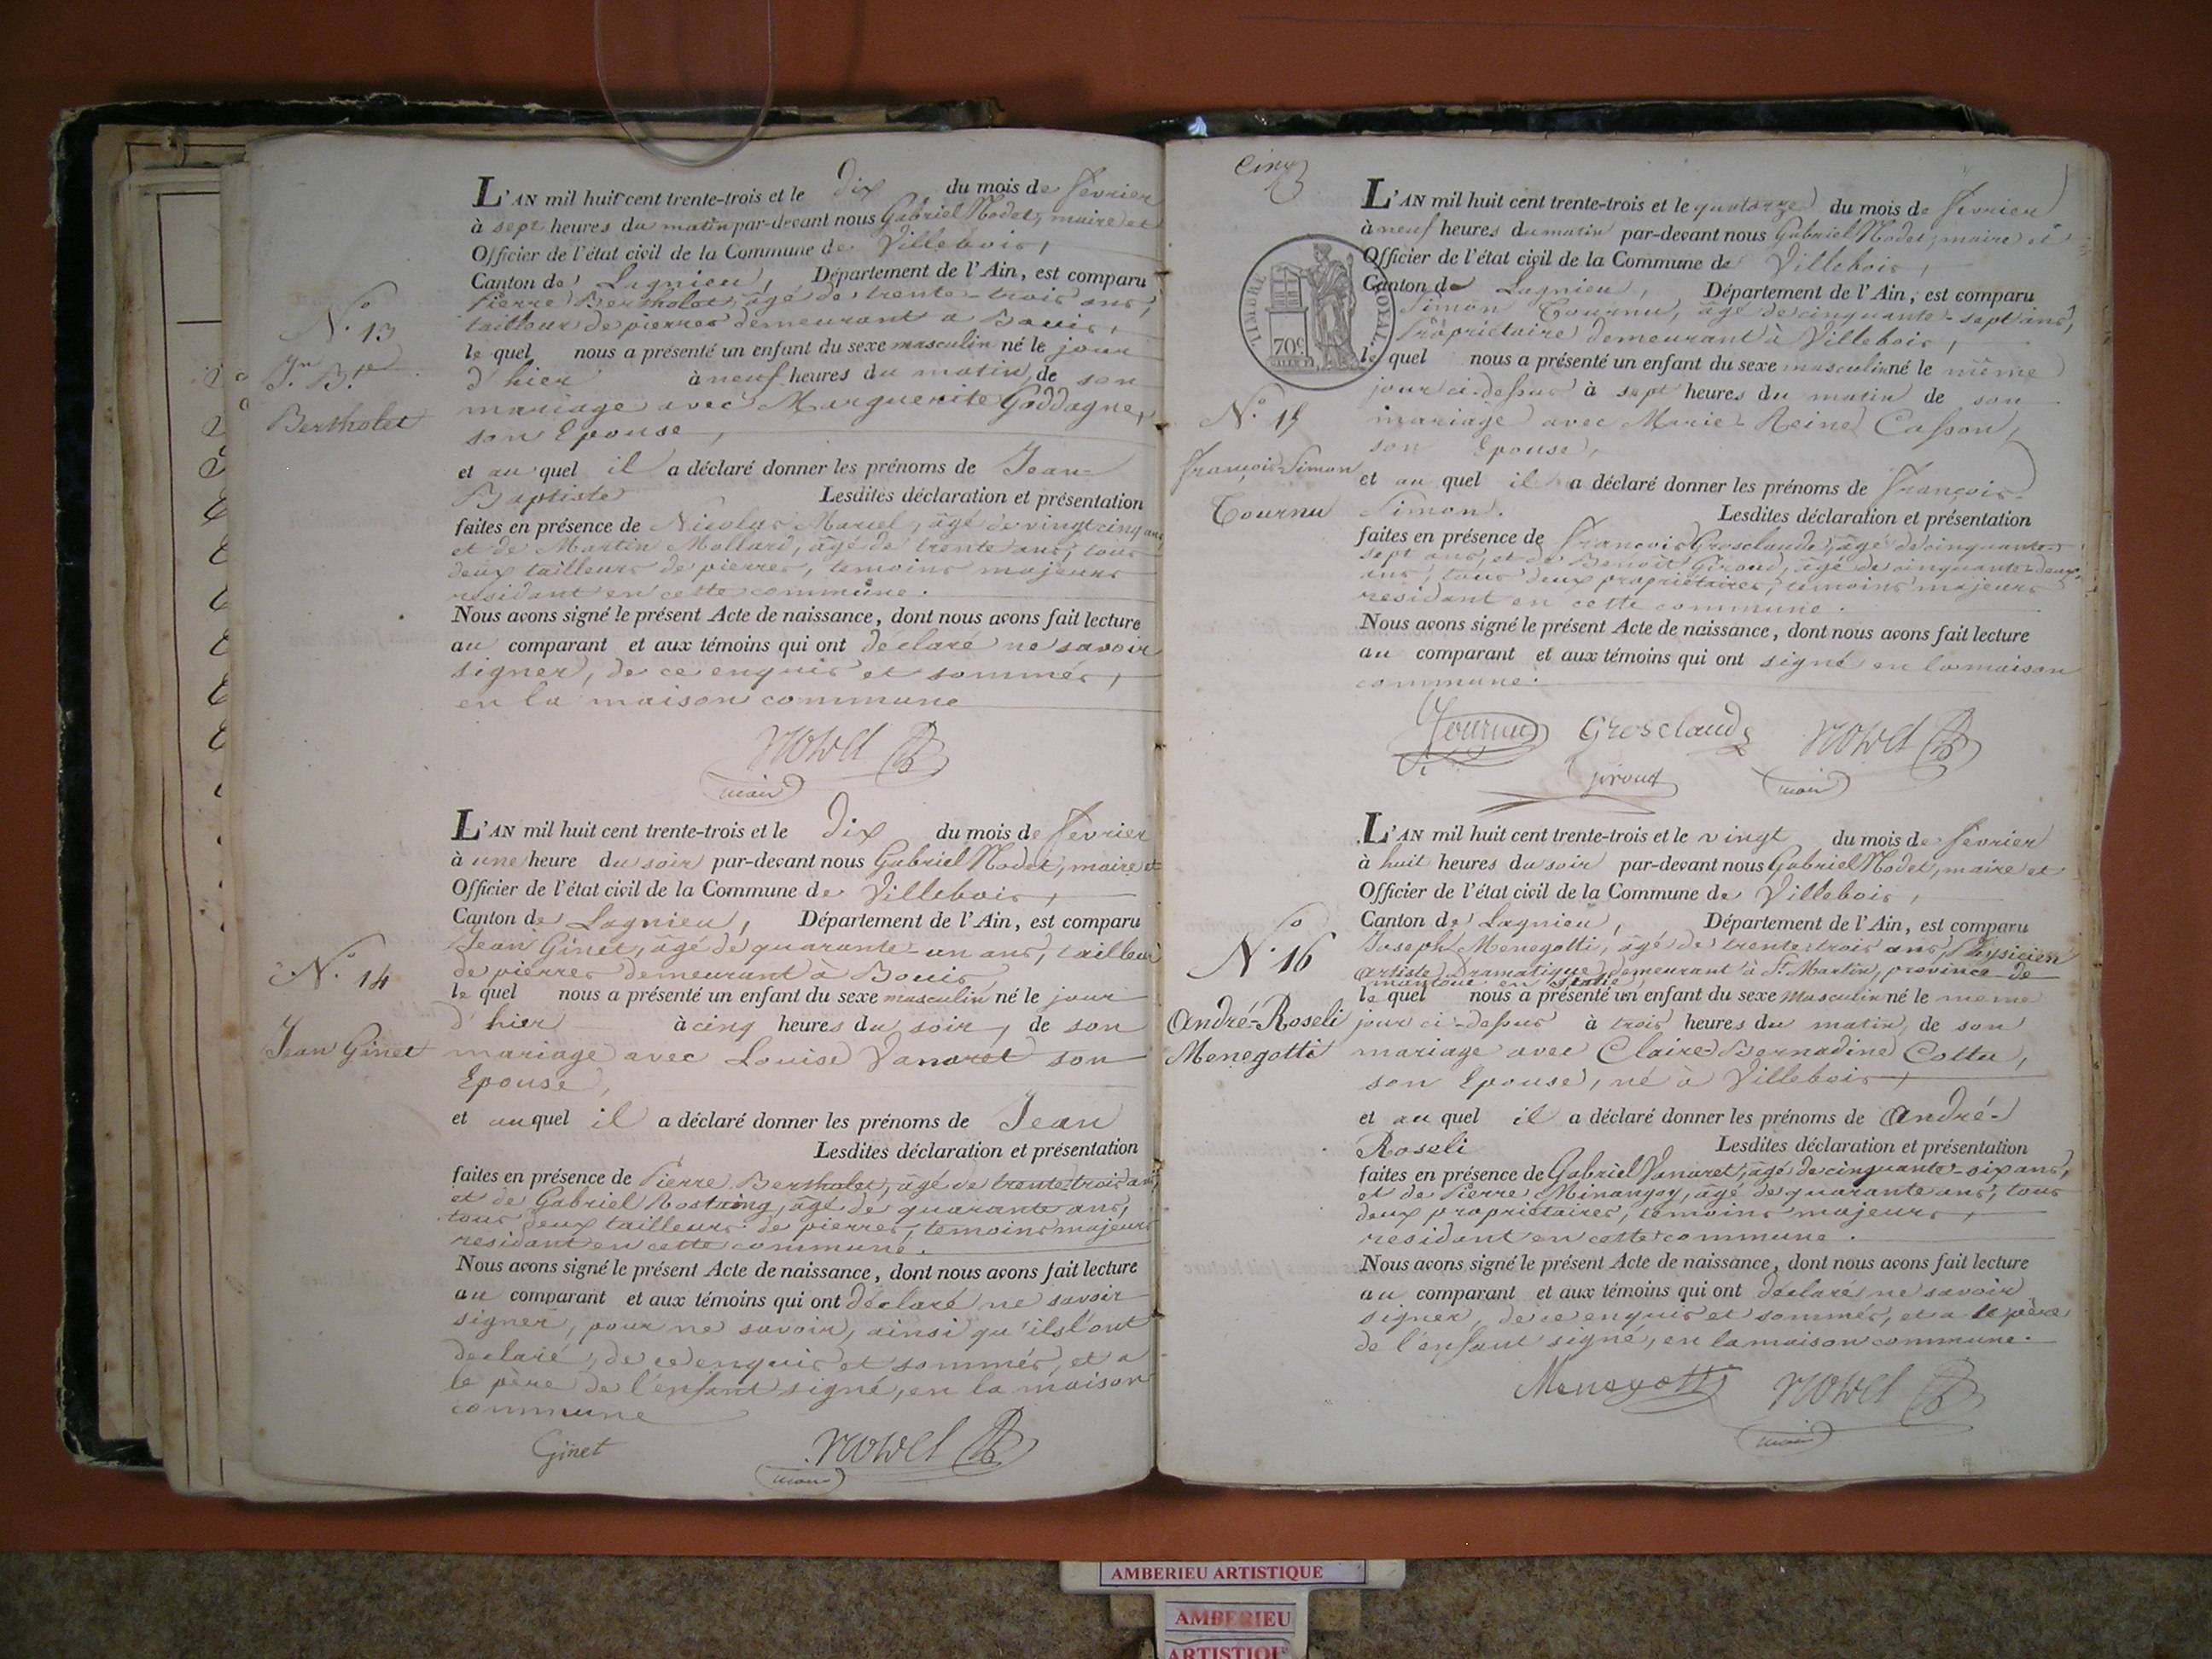 L'AN mil huit cent trente-trois et le Dix du mois de février
à sept heures du matin par-devant nous Gabriel Nodet, maire et
Officier de l'état civil de la Commune de Villebois,
Canton de Lagnieu, Département de l'Ain, est comparu
Pierre Bertholet, âgé de trente-trois ans,
tailleur de pierres demeurant a Bouis,
le quel nous a présenté un enfant du sexe masculin né le jour
d'hier à neuf heures du matin, de son
mariage avec Marguerite Goddagne,
son Epouse,
et au quel il a déclaré donner les prénoms de Jean-
Baptiste Lesdites déclaration et présentation
faites en présence de Nicolas Marcel, âgé de vingt cinq ans,
et de Martin Mollard, âgé de trente ans, tous
deux tailleurs de pierres, temoins majeurs
residant en cette commune.
Nous avons signé le présent Acte de naissance, dont nous avons fait lecture
au comparant et aux témoins qui ont déclaré ne savoir
signer, de ce enquis et sommés,
en la maison commune
Nodet
maire
N.o 13
Jn. Bte
Bertholet
L'AN mil huit cent trente-trois et le Dix du mois de février
à une heure du soir par-devant nous Gabriel Nodet, maire et
Officier de l'état civil de la Commune de Villebois,
Canton de Lagnieu, Département de l'Ain, est comparu
Jean Ginet, âgé de quarante-un ans, tailleur
de pierres demeurant à Bouis,
le quel nous a présenté un enfant du sexe masculin né le jour
d'hier à cinq heures du soir, de son
mariage avec Louise Vanaret son
Epouse,
et au quel il a déclaré donner les prénoms de Jean
Lesdites déclaration et présentation
faites en présence de Pierre Bertholet, âgé de trente trois ans,
et de Gabriel Rostaing, âgé de quarante ans,
tous deux tailleurs de pierres, temoins majeurs
residant en cette commune.
Nous avons signé le présent Acte de naissance, dont nous avons fait lecture
au comparant et aux témoins qui ont déclaré ne savoir
signer, pour ne savoir, ainsi qu'ils l'ont
declaré, de ce enquis et sommés, et a
le père de l'enfant signé, en la maison
commune
Ginet Nodet
maire
N.o 14
Jean Ginet
Cinq
TIMBRE ROYAL
70c
L'AN mil huit cent trente-trois et le quatorze du mois de février
à neuf heures du matin par-devant nous Gabriel Nodet, maire et
Officier de l'état civil de la Commune de Villebois,
Canton de Lagnieu, Département de l'Ain, est comparu
Simon Tournu, âgé de cinquante-sept ans,
Propriétaire demeurant à Villebois,
le quel nous a présenté un enfant du sexe masculin né le même
jour ci-dessus à sept heures du matin de son
mariage avec Marie-Reine Casson,
son Epouse,
et au quel il a déclaré donner les prénoms de François-
Simon. Lesdites déclaration et présentation
faites en présence de François Grosclaude, âgé de cinquante-
sept ans, et de Benoît Giroud, âgé de cinquante-deux
ans, tous deux propriétaires, temoins majeurs
residant en cette commune.
Nous avons signé le présent Acte de naissance, dont nous avons fait lecture
au comparant et aux témoins qui ont signé en la maison
commune.
Tournu Grosclaude Nodet
giroud maire
N.o 15
François-Simon
Tournu
L'AN mil huit cent trente-trois et le vingt du mois de février
à huit heures du soir par-devant nous Gabriel Nodet, maire et
Officier de l'état civil de la Commune de Villebois,
Canton de Lagnieu, Département de l'Ain, est comparu
Joseph Menegotti, âgé de trente-trois ans, Physicien
artiste Dramatique, demeurant à St. Martin, province de
mantoue en Italie,
le quel nous a présenté un enfant du sexe masculin né le même
jour ci-dessus à trois heures du matin, de son
mariage avec Claire-Bernadine Cotta,
son Epouse, né à Villebois,
et au quel il a déclaré donner les prénoms de André-
Roseli Lesdites déclaration et présentation
faites en présence de Gabriel Vanaret, âgé de cinquante-six ans,
et de Pierre Minangoy, âgé de quarante ans, tous
deux propriétaires, temoins majeurs,
residant en cette commune.
Nous avons signé le présent Acte de naissance, dont nous avons fait lecture
au comparant et aux témoins qui ont déclaré ne savoir
signer, de ce enquis et sommés, et a le père
de l'enfant signé, en la maison commune.
Menegotti Nodet
maire
N.o 16
André-Roseli
Menegotti
AMBERIEU ARTISTIQUE
AMBERIEU
ARTISTIQUE